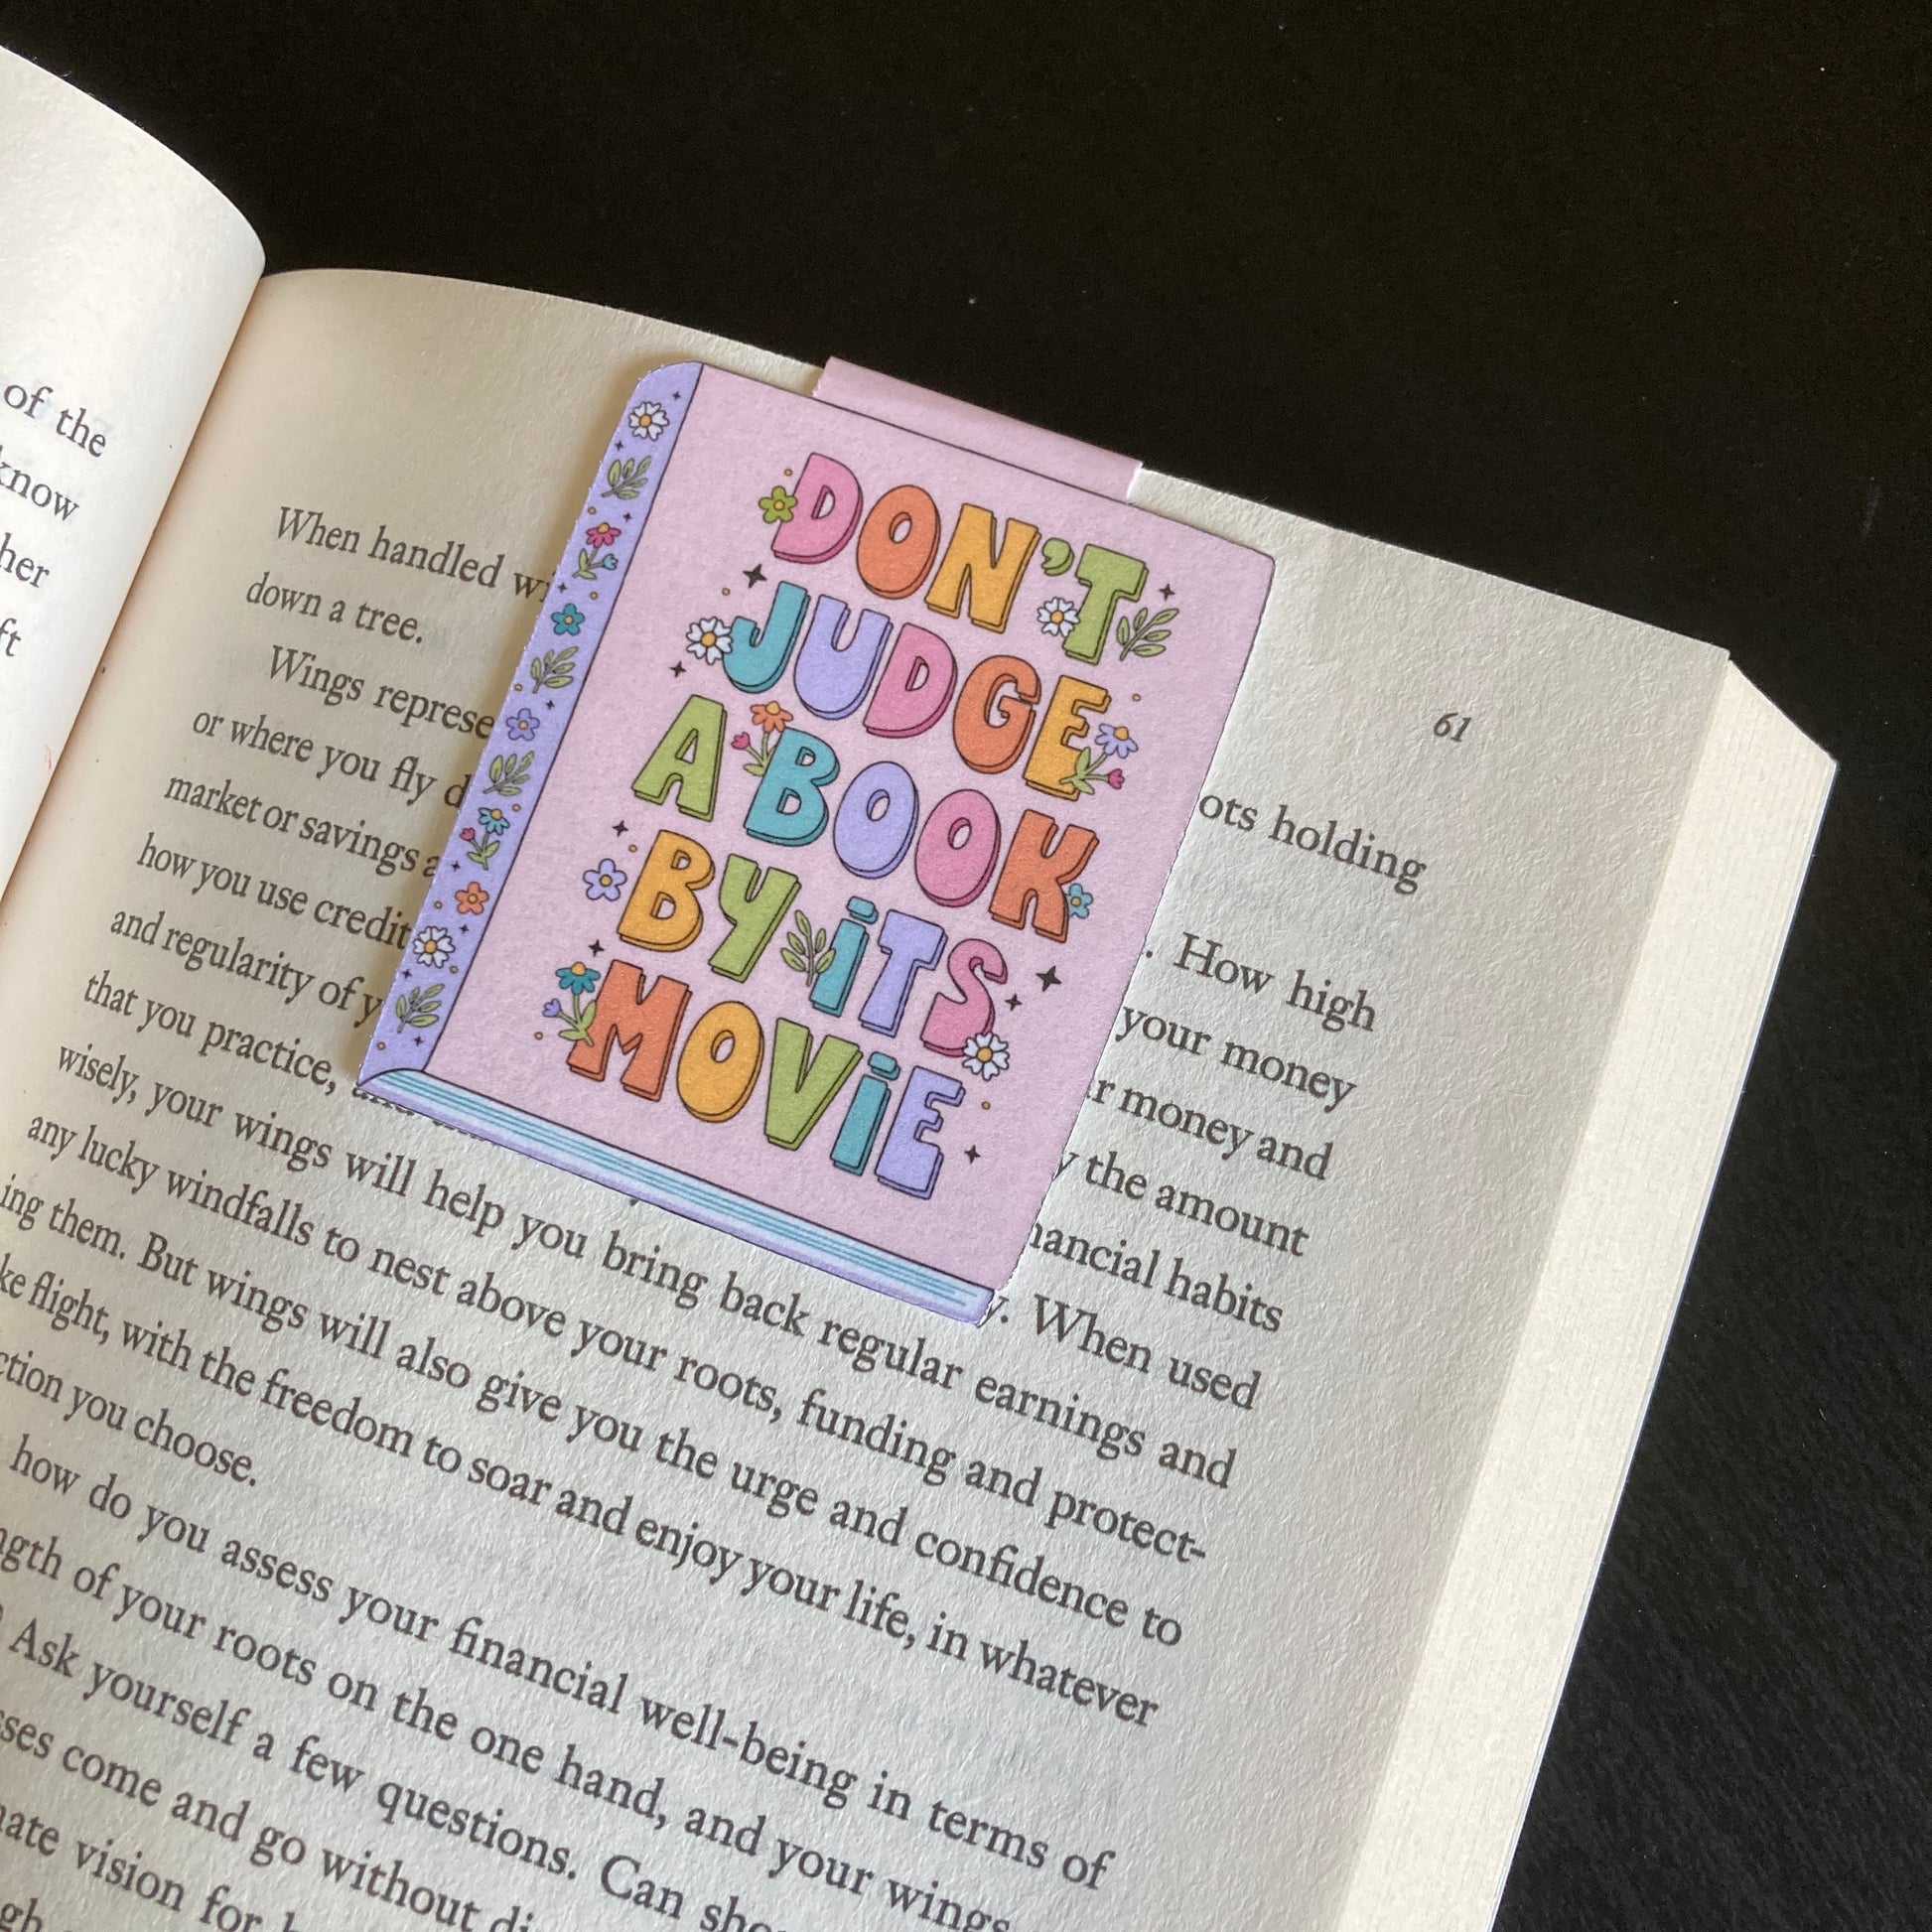 of the
know
her
ft
DON'T
JUDGE
A BOOK
BY ITS
MOVIE
61
When handled
ots holding
down a tree.
Wings
or where you fly
. How high
market or savings
your money
how you use credit
money and
and regularity of
the amount
that you practice,
habits
wisely, your wings will help you bring back regular earnings and
. When used
any lucky windfalls to nest above your roots, funding and protect-
ing them. But wings will also give you the urge and confidence to
flight, with the freedom to soar and enjoy your life, in whatever
you choose.
how do you assess your financial well-being in terms of
of your roots on the one hand, and your wings
Ask yourself a few questions. Can
come and go without
vision for